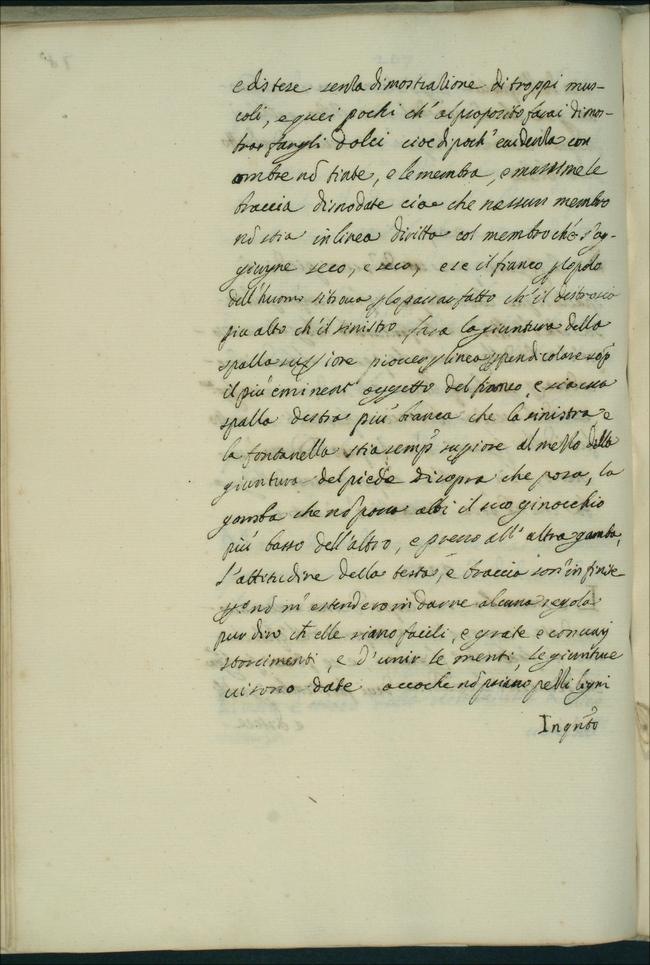 e distese senza dimostratione di troppi mus-
coli, e quei pochi ch' al proposito farai dimos-
trar fangli dolci cioè di poch' euidenza con
ombre nõ tinte, e le membra, e massime le
braccia disnodate cioe che nessun membro
nõ stia in linea diritta col membro ché s' ag-
giugne seco, e seco, e se il fianco polo
dell' huomo si troua p lo posar fatto ch' il destro sia
piu alto ch' il sinistro farai la giuntura della
spalla supiore piouer p linea ppendicolare sop
il piu eminent' oggetto del fianco e sia essa
spalla destra più bassa che la sinistra e
la fontanella stia semp supiore al mezzo della
giuntura del piede di sopra che posa, la
gamba che nõ posa abbi il suo ginocchio
più basso dell' altro, e presso all' altra gamba,
l' attitudine della testa, e braccia son' infinite
nõ m' estenderò in darne alcuna regola
pur dirò ch elle siano facili, e grate e con uarij
storcimenti, e d' unir le menti, le giunture
ui sono date accochè nõ paiano pezzi legni
In qrto